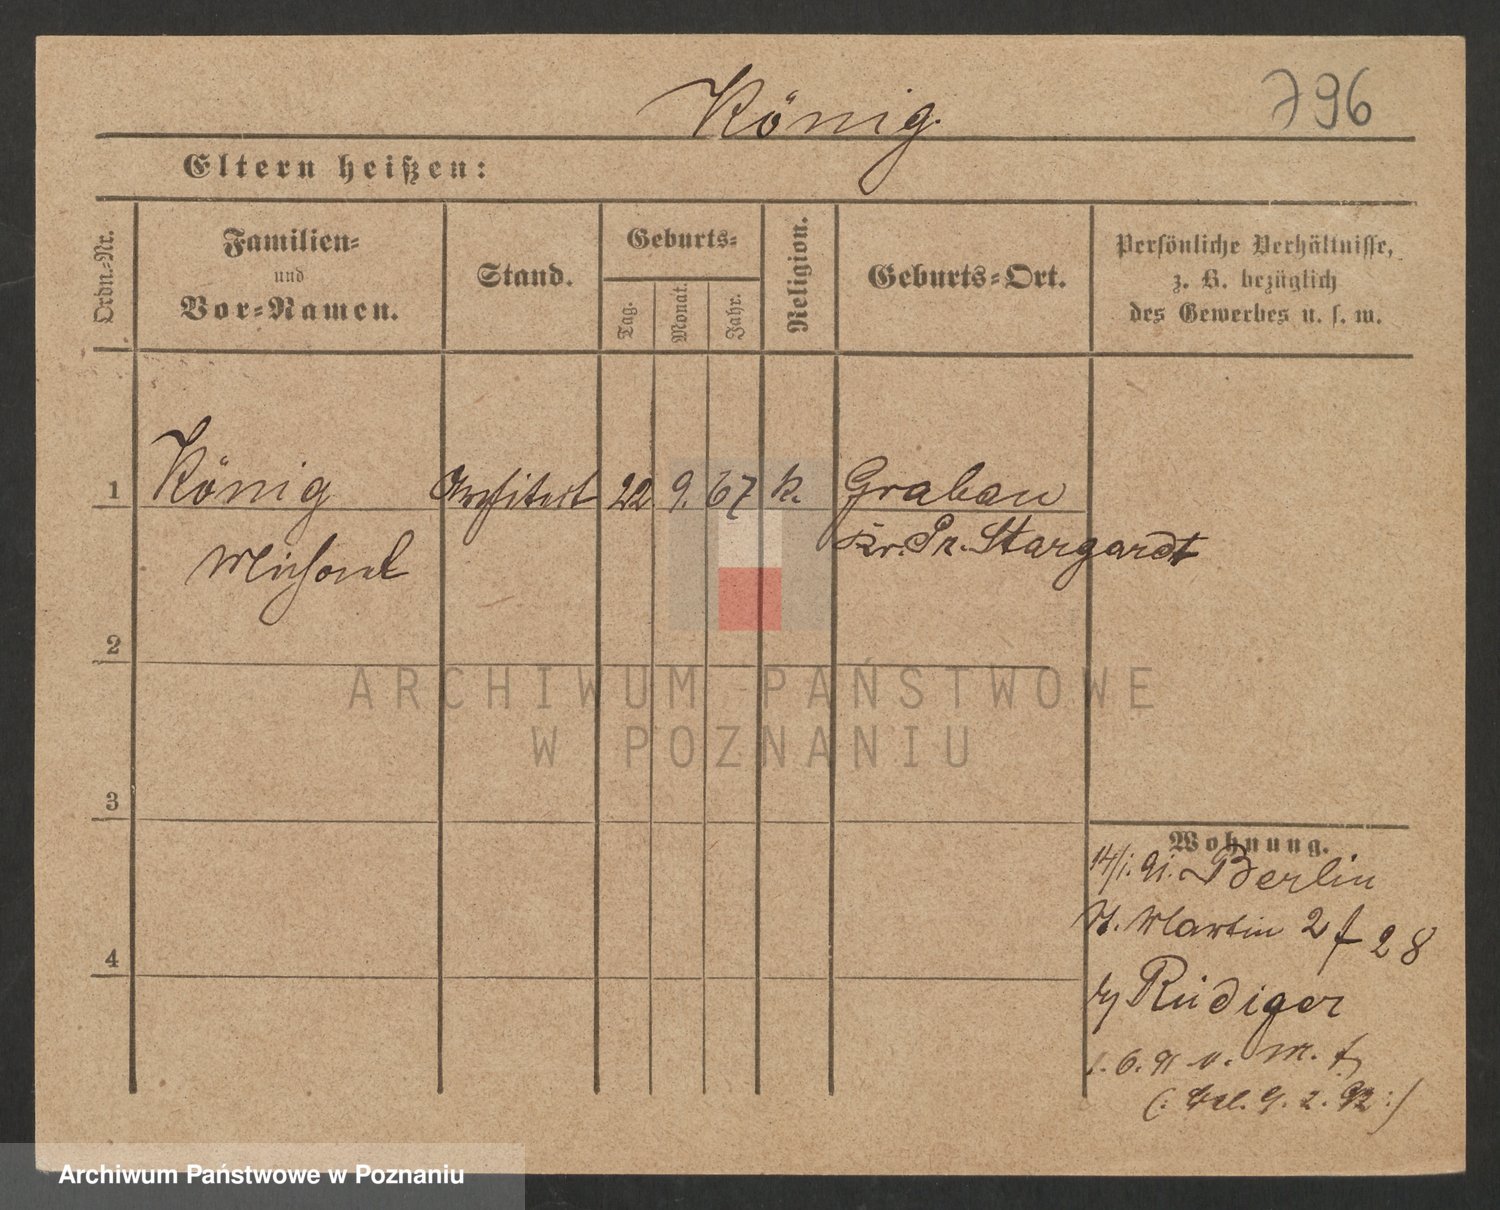 König.
796
Eltern heißen:
Ordn.-Nr.
Familien-
und
Vor-Namen.
Stand.
Geburts-
Tag.
Monat.
Jahr.
Religion.
Geburts-Ort.
Persönliche Verhältnisse,
z. B. bezüglich
des Gewerbes u. s. w.
1 König Architect 22 9. 67 k. Grabau
Michael Kr. Pr. Stargardt
2
3
4
Wohnung.
14/1. 91. Berlin
St. Martin 2 f 28
Rüdiger
1. 6. 91 v. m.
9. 2. 92 :)
ARCHIWUM PAŃSTWOWE
W POZNANIU
Archiwum Państwowe w Poznaniu